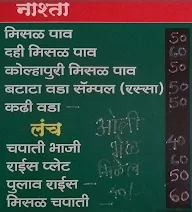 नाश्ता
मिसळ पाव 50
दही मिसळ पाव 60
कोल्हापुरी मिसळ पाव 50
बटाटा वडा सॅम्पल (रस्सा) 50
कढी वडा 50
लंच
ओली
भेळ
मिळेल
चपाती भाजी 40
राईस प्लेट 60
पुलाव राईस 50
मिसळ चपाती 60